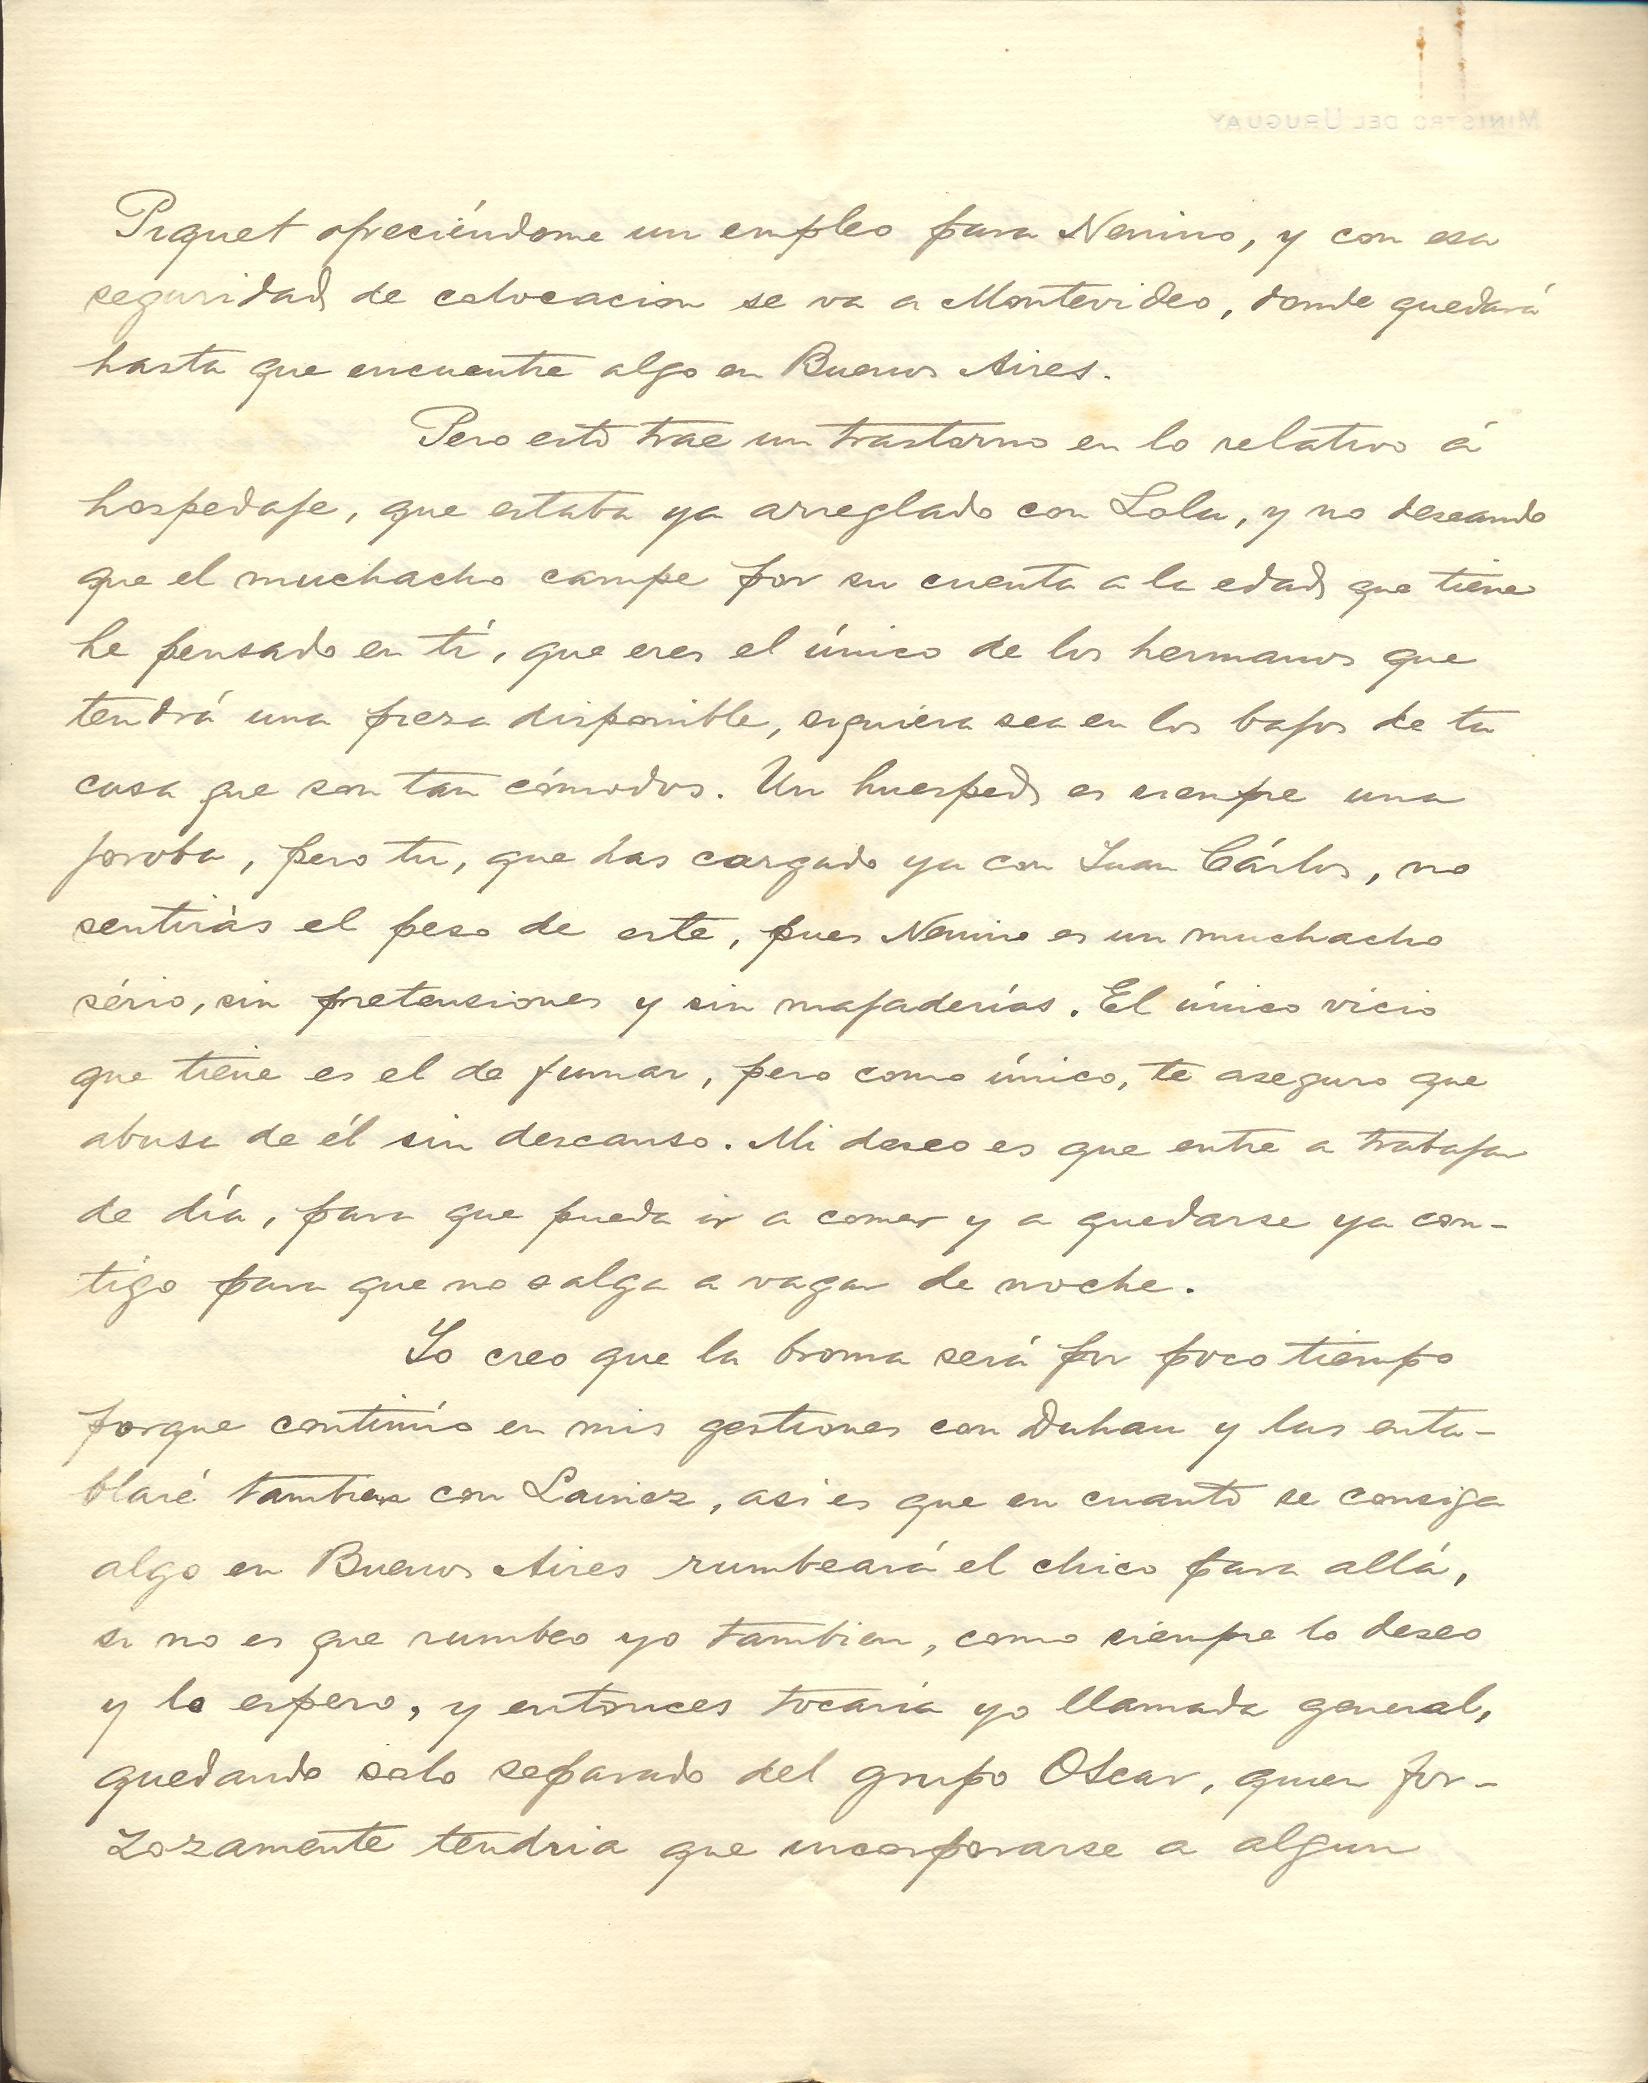 MINISTRO DEL URUGUAY
Piquet ofreciéndome un empleo para Nenino, y con esa
seguridad de colocacion se va a Montevideo, donde quedará
hasta que encuentre algo en Buenos Aires.
Pero esto trae un trastorno en lo relativo á
hospedaje, que estaba ya arreglado con Lola, y no deseando
que el muchacho campe por su cuenta a la edad que tiene
he pensado en tí, que eres el único de los hermanos que
tendrá una pieza disponible, siquiera sea en los bajos de tu
casa que son tan cómodos. Un huesped es siempre una
joroba, pero tu, que has cargado ya con Juan Cárlos, no
sentirás el peso de este, pues Nenino es un muchacho
sério, sin pretensiones y sin majaderías. El único vicio
que tiene es el de fumar, pero como único, te aseguro que
abusa de él sin descanso. Mi deseo es que entre a trabajar
de día, para que pueda ir a comer y a quedarse ya con-
tigo para que no salga a vagar de noche.
Yo creo que la broma será por poco tiempo
porque continúo en mis gestiones con Duhau y las enta-
blaré tambien con Lainez, asi es que en cuanto se consiga
algo en Buenos Aires rumbeará el chico para allá,
si no es que rumbeo yo tambien, como siempre lo deseo
y lo espero, y entonces tocaría yo llamada general,
quedando solo separado del grupo Oscar, quien for-
zozamente tendria que incorporarse a algun